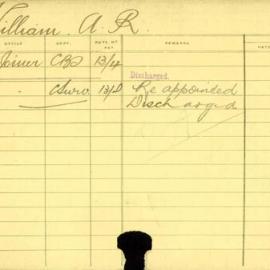 William. A. R.
OFFICE DEPT. RATE OF PAY REMARKS
Joiner CBS 13/4 Discharged.
- 13/8 Re appointed
Discharged